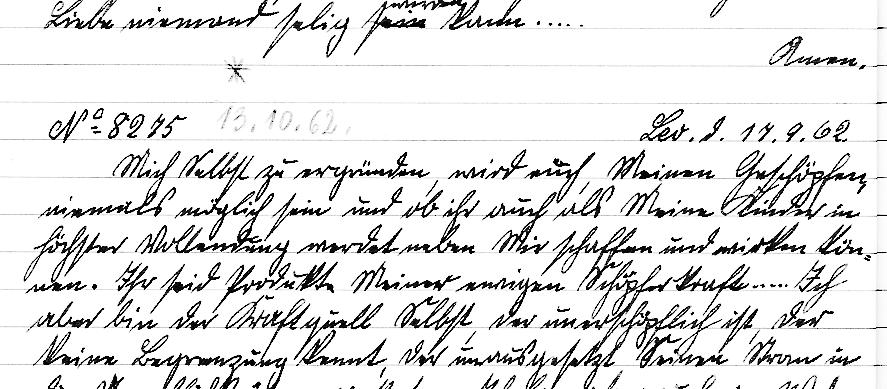 Liebe niemand selig sein werden kann.....
Amen.
No 8275 13.10.62. Leo. d. 17.9.62
Mich Selbst zu ergründen, wird euch, Meinen Geschöpfen,
niemals möglich sein und ob ihr auch als Meine Kinder in
höchster Vollendung werdet neben Mir schaffen und wirken kön=
nen. Ihr seid Produkte Meiner ewigen Schöpferkraft..... Ich
aber bin der Kraftquell Selbst, der unerschöpflich ist, der
keine Begrenzung kennt, der unausgesetzt Seinen Strom in